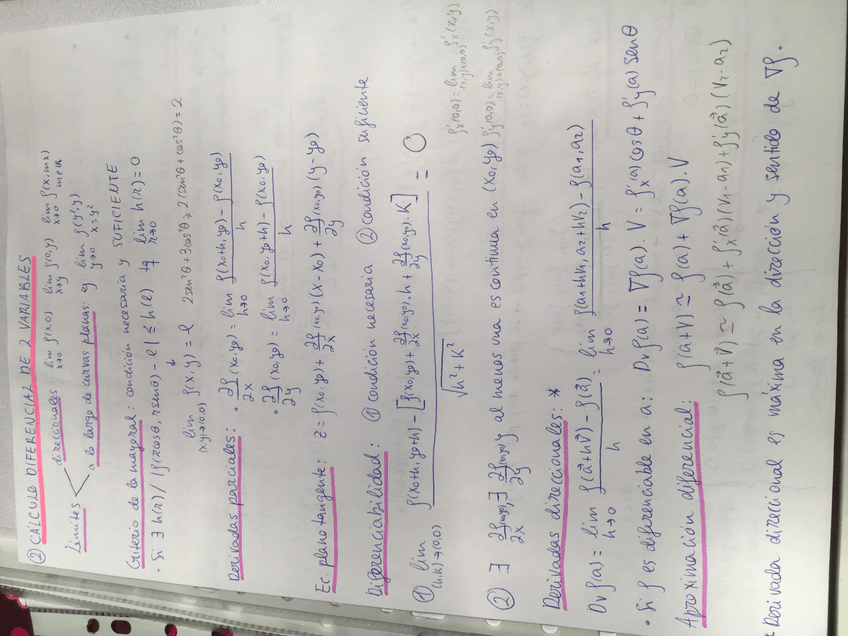 ② CÁLCULO DIFERENCIAL DE 2 VARIABLES
Límites
direccionales: lim x→0 f(x,0) lim x→y f(0,y) lim x→0 f(x,mx) m∈ℝ
a lo largo de curvas planas: ej lim y→0 f(y²,y) x=y²
Criterio de la mayoral: condición necesaria y SUFICIENTE
• Si ∃ h(r) / |f(rcosθ, rsenθ) - l| ≤ h(r) tq lim r→0 h(r) = 0
↓
lim (x,y)→(0,0) f(x,y) = l 2sen²θ + 3cos²θ ≥ 2(sen²θ + cos²θ) = 2
Derivadas parciales: • ∂f/∂x (x₀,y₀) = lim h→0 f(x₀+h,y₀) - f(x₀,y₀) / h
• ∂f/∂y (x₀,y₀) = lim h→0 f(x₀,y₀+h) - f(x₀,y₀) / h
Ec. plano tangente: z = f(x₀,y₀) + ∂f/∂x (x₀,y₀) (x-x₀) + ∂f/∂y (x₀,y₀) (y-y₀)
Diferenciabilidad: ① condición necesaria ② condición suficiente
① lim (h,k)→(0,0) f(x₀+h,y₀+h) - [f(x₀,y₀) + ∂f/∂x (x₀,y₀)·h + ∂f/∂y (x₀,y₀)·K] / √h²+K² = 0
f'x(0,0) = lim (x,y)→(0,0) f'x(x,y)
② ∃ ∂f/∂x (x₀,y₀), ∃ ∂f/∂y (x₀,y₀) y al menos una es continua en (x₀,y₀) f'y(0,0) = lim (x,y)→(0,0) f'y(x,y)
Derivadas direccionales: *
Dvf(a) = lim h→0 f(a⃗+hv⃗) - f(a⃗) / h = lim h→0 f(a₁+hv₁, a₂+hv₂) - f(a₁,a₂) / h
• Si f es diferenciable en a: Dvf(a) = ∇f(a) . V = f'x(a) cosθ + f'y(a) senθ
Aproximación diferencial: f(a+v) ≃ f(a) + ∇f(a) . V
f(a⃗+v⃗) ≃ f(a⃗) + f'x(a⃗)(v₁-a₁) + f'y(a⃗)(v₂-a₂)
* Derivada direccional es máxima en la dirección y sentido de ∇f.